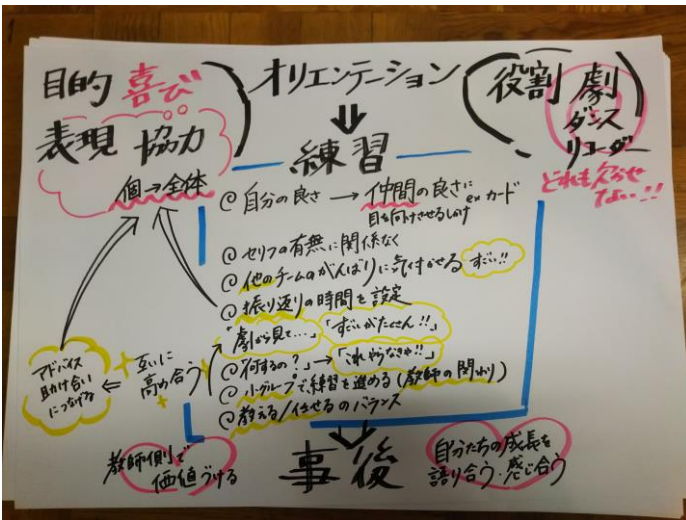 目的 喜び
表現 協力
個→全体
オリエンテーション
役割 劇
ダンス
リコーダー
どれも欠かせ
ない!!
練習
@ 自分の良さ → 仲間の良さに ex カード
目を向けさせるしかけ
@ セリフの有無に関係なく
@ 他のチームのがんばりに気付かせる すごい!!
@ 振り返りの時間を設定
「劇から見て…」「すごいがたくさん!!」
@「何するの?」→「これやらなきゃ!!」
@ 小グループで練習を進める(教師の関わり)
@ 教える/任せるのバランス
互いに
高め合う
アドバイス
助け合い
につなげる
教師側で
価値づける
事後
自分たちの成長を
語り合う・感じ合う